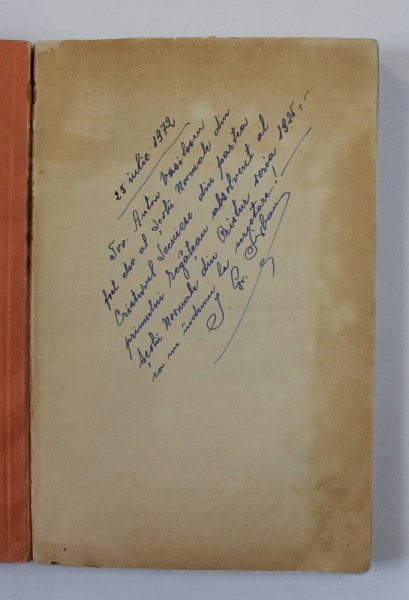 25 iulie 1972
Tov. Anton Vasilescu
fost elev al Școlii Normale din
Cristurul Secuiesc din partea
primului regățean absolvent al
Școlii Normale din Cristur seria 1925,-
ca un îndemn la urgotare!
I. Gr.